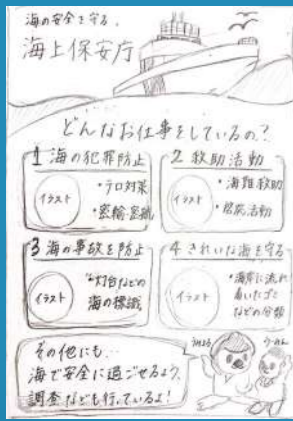 海の安全を守る、
海上保安庁
どんなお仕事をしているの?
1 海の犯罪防止
イラスト
・テロ対策
・密輸・密航
2 救助活動
イラスト
・海難救助
・防災活動
3 海の事故を防止
イラスト
灯台などの
海の標識
4 きれいな海を守る
イラスト
・海岸に流れ
着いたゴミ
などの分類
その他にも…
海で安全に過ごせるよう、
調査なども行っているよ!
うみまる
うーみん